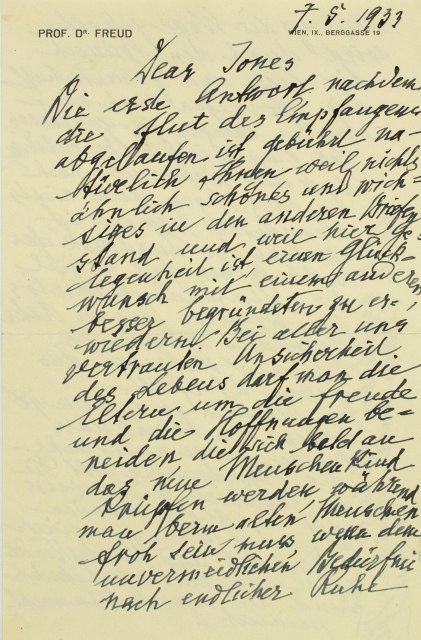 7. 5. 1933
PROF. DR. FREUD
WIEN, IX., BERGGASSE 19
Dear Jones
Die erste Antwort nachdem
die Flut des Empfangenen
abgelaufen ist gebührt na-
türlich Ihnen weil nichts
ähnlich schönes und wich-
tiges in den anderen Briefen
stand und weil hier Ge-
legenheit ist einen Glück-
wunsch mit einem anderen
besser begründeten zu er-
wiedern. Bei aller uns
vertrauten Unsicherheit
des Lebens darf man die
Eltern um die Freude
und die Hoffnungen be-
neiden die sich bald an
das neue Menschenkind
knüpfen werden, während
man beim alten Menschen
froh sein muss, wenn dem
unvermeidlichen Bedürfnis
nach endlicher Ruhe